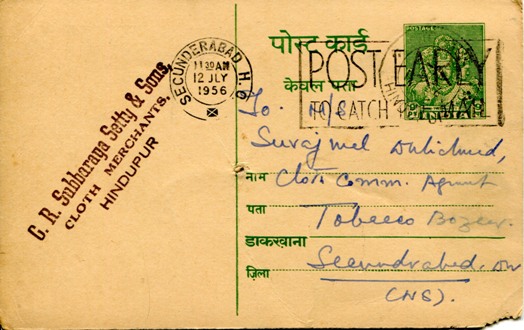 C. R. Subbaraya Setty & Sons,
CLOTH MERCHANTS,
HINDUPUR
SECUNDERABAD H.O
11 30 AM
12 JLY
1956
पोस्ट कार्ड
केवल पता
POSTAGE
POST EARLY
TO CATCH THE MAIL
To. M/S
Surajmel
नाम Cloth Comm. Agent
पता Tobacco Bazar.
डाकख़ाना
ज़िला Secundrabad.
(NS).